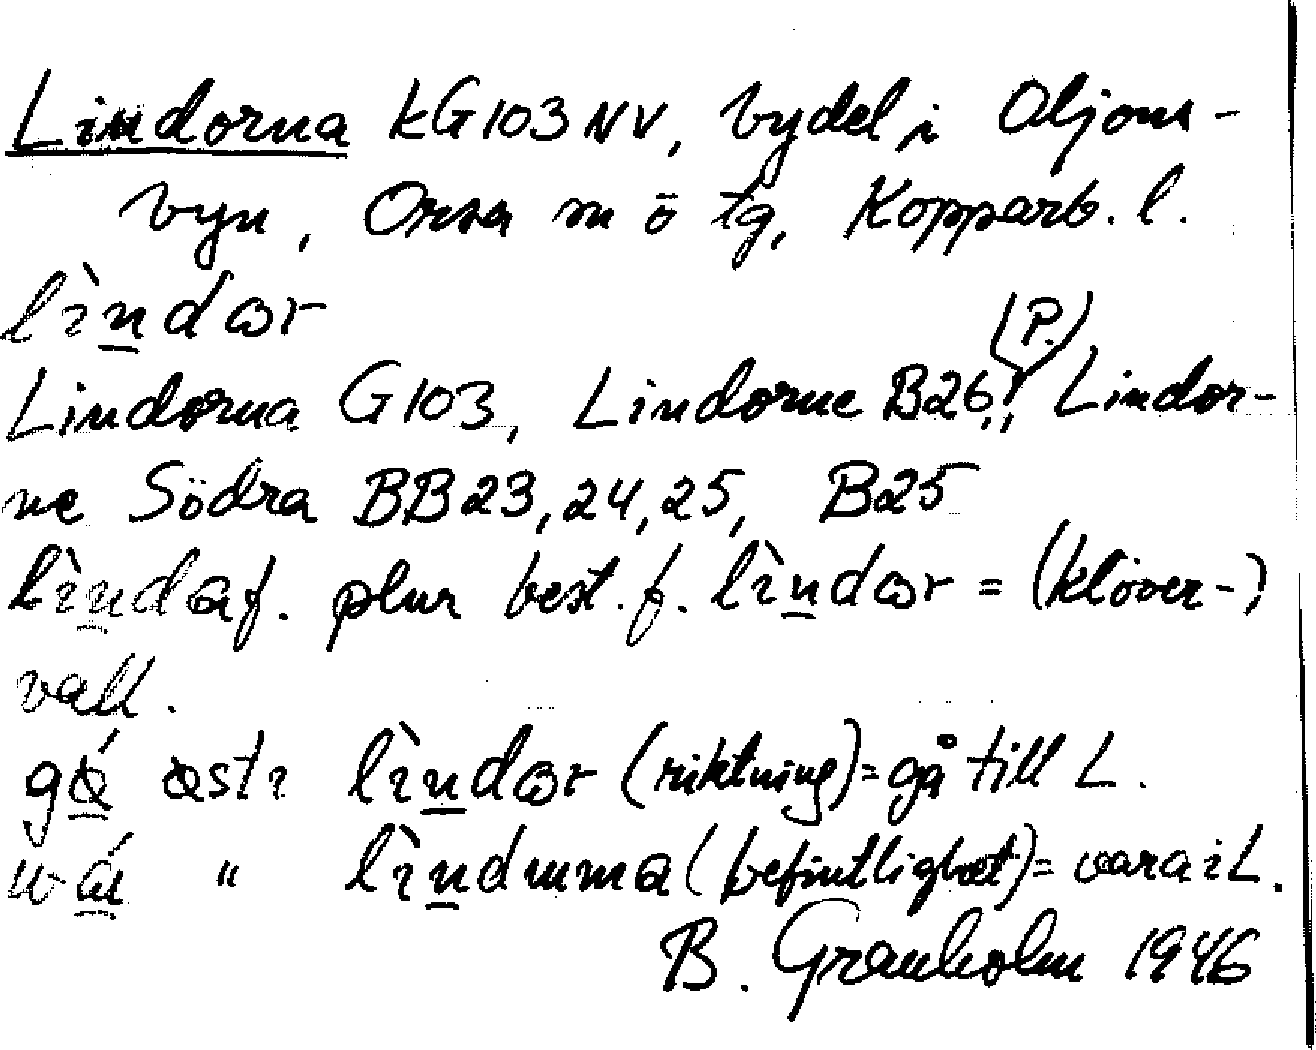 Lindorna kG103NV, bydel i Oljons-
byn, Orsa sn o tg, Kopparb. l.
lìndar
(P.)
Lindorna G103, Lindorne B26, Lindor-
ne Södra BB23,24,25, B25
lìnda f. plur best. f. lìndar = (klöver-)
vall.
gá asti lìndar (riktning) = gå till L.
wá " lìndumma (befintlighet) = vara i L.
B. Granholm 1946